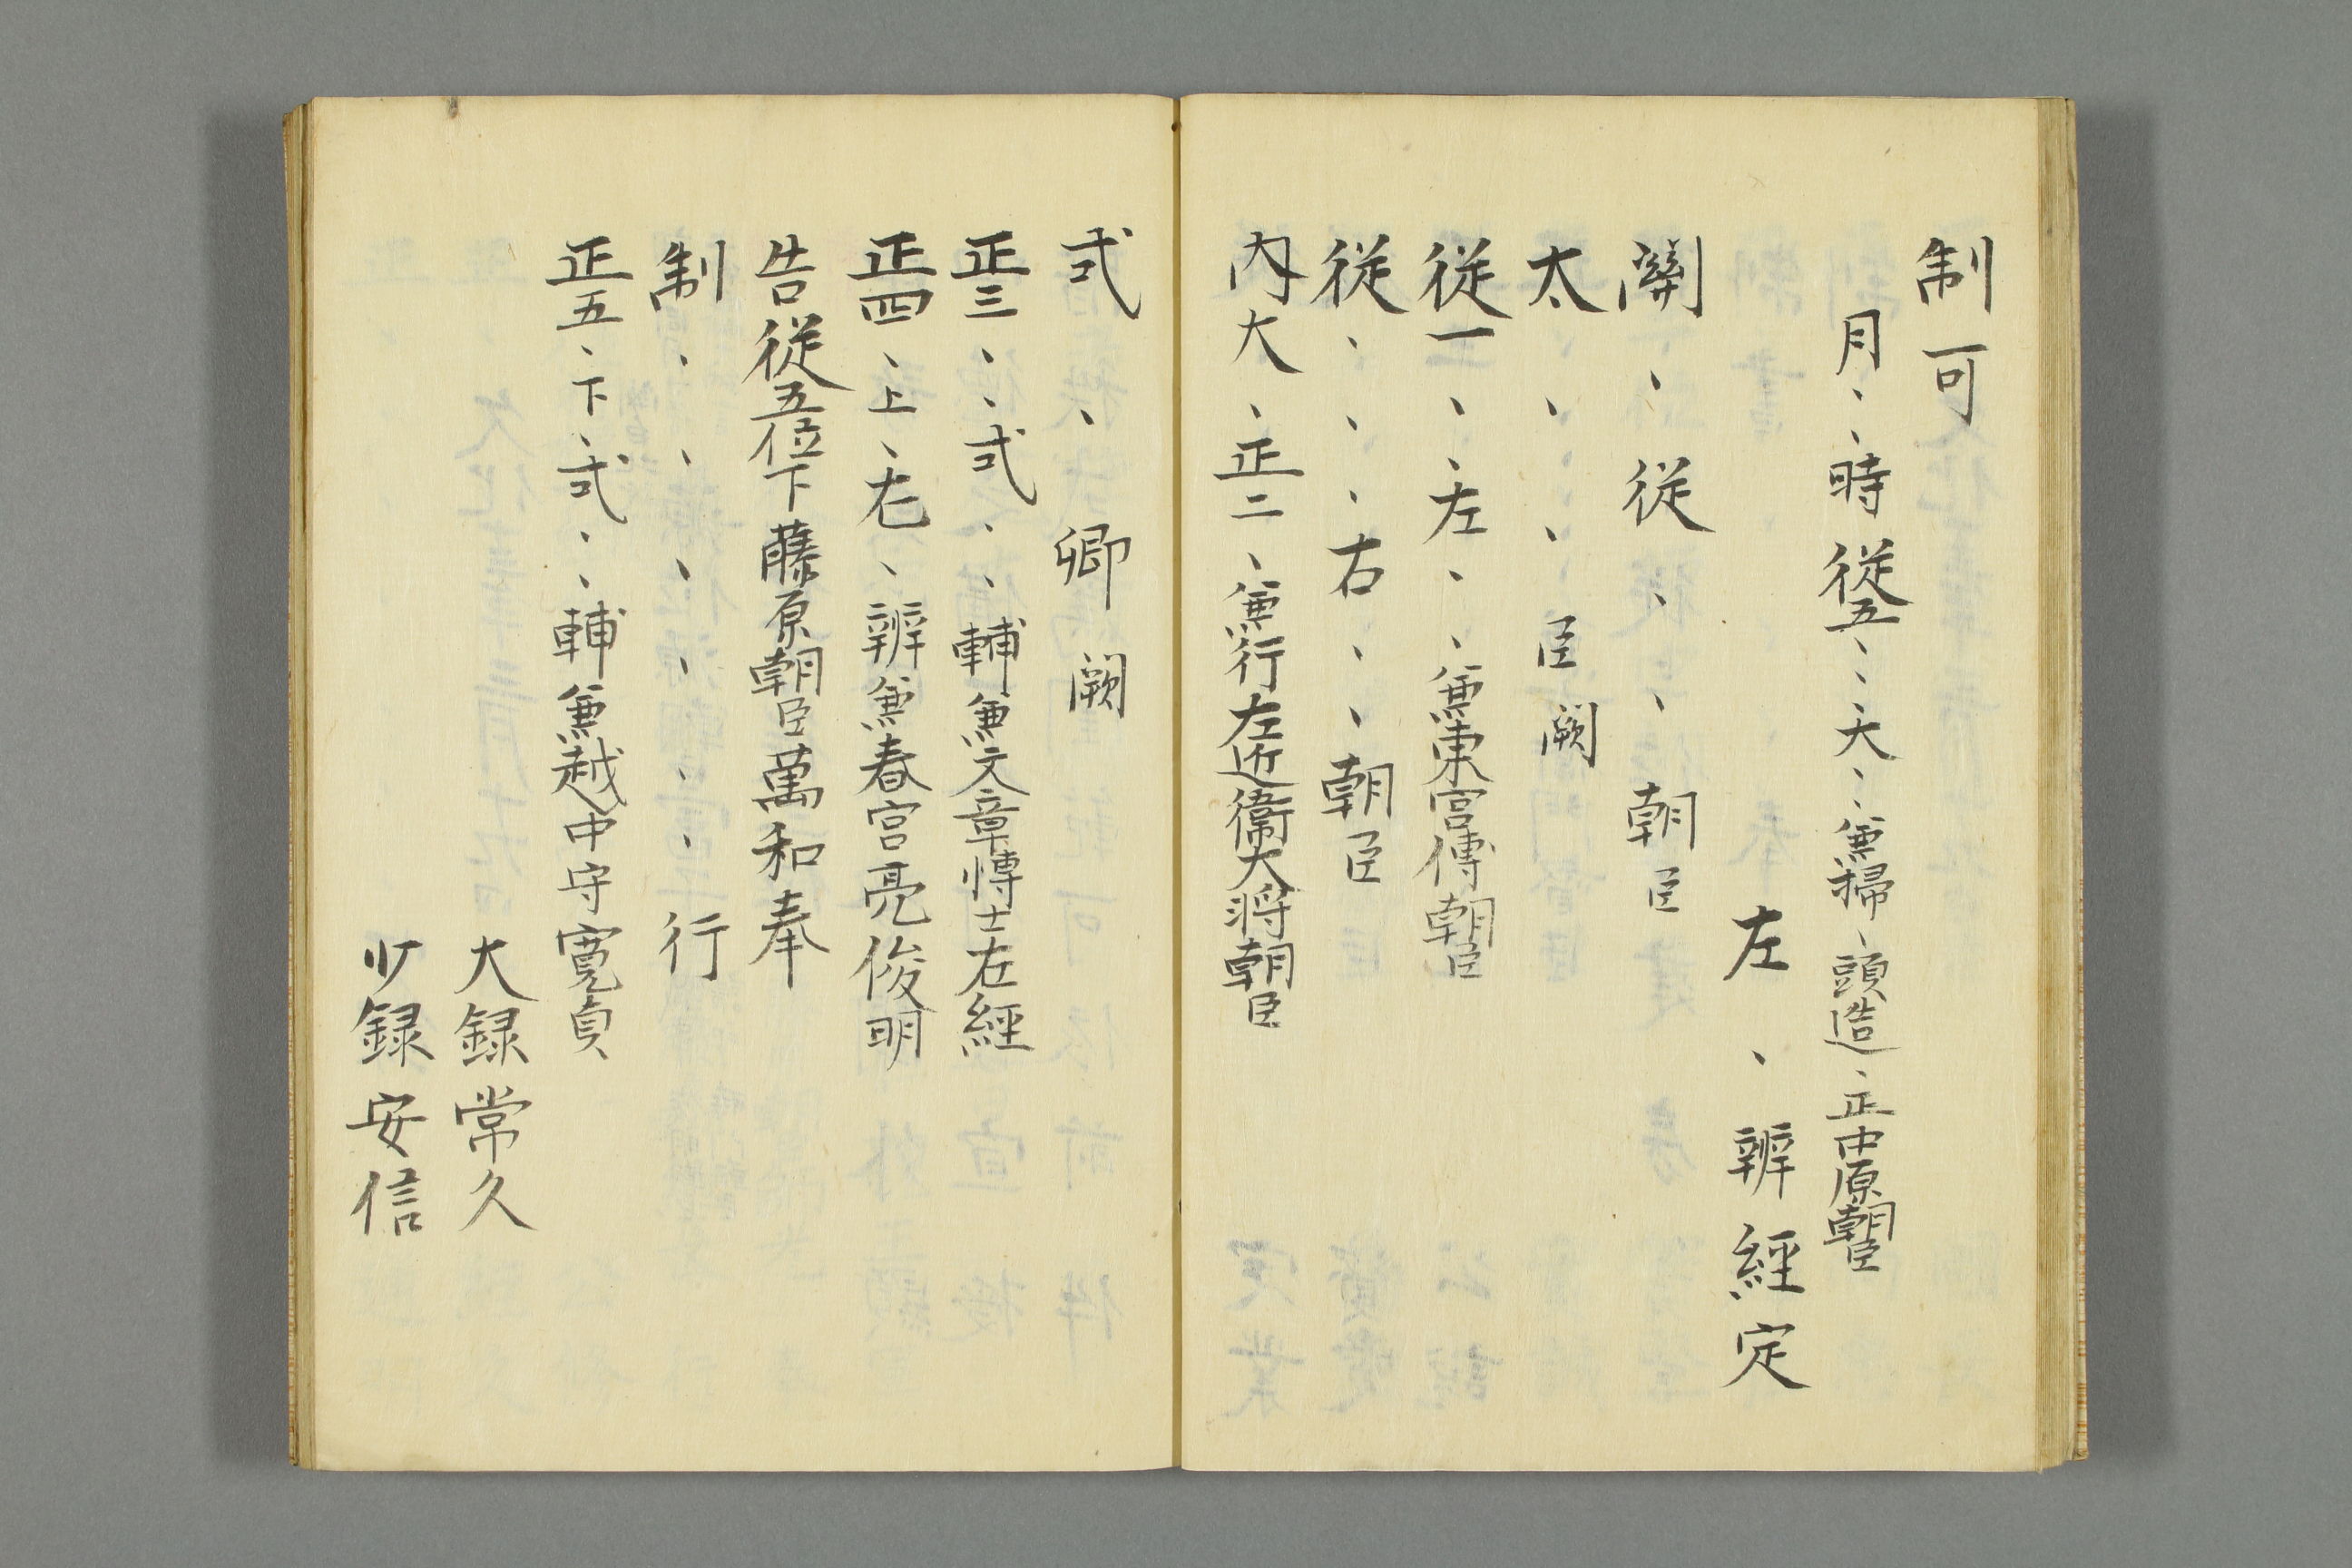 制可
月、、時從五、、、大、、兼掃、頭造、正中原朝臣
左、辨經定
關、從、、朝臣
太、、、臣闕
從一、、左、、、兼東宮傅朝臣
從、、、右、、朝臣
內大、正二、兼行左近衛大将朝臣
式、卿闕
正三、、式、、輔兼文章博士在經
正四、上、右、辨兼春宮亮俊明
告從五位下藤原朝臣萬和奉
制、、、、、、行
正五、下、式、、輔兼越中守寬貞
大録常久
少録安信